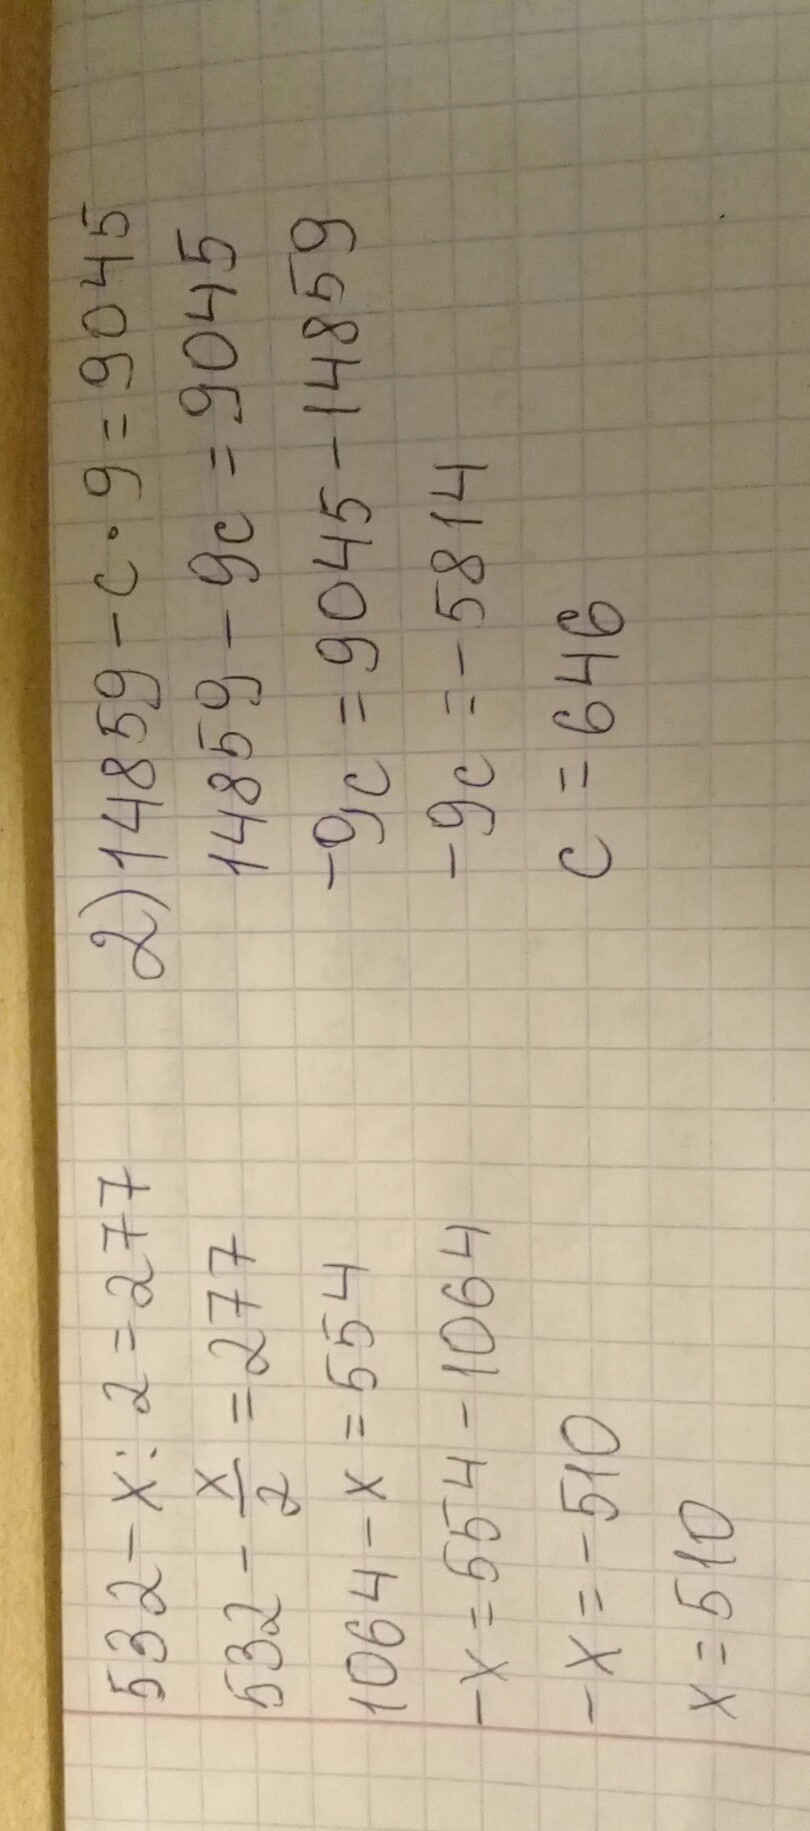 532-x:2=277
532-x/2=277
1064-x=554
-x=554-1064
-x=-510
x=510
2)14859-c·9=9045
14859-9c=9045
-9c=9045-14859
-9c=-5814
c=646